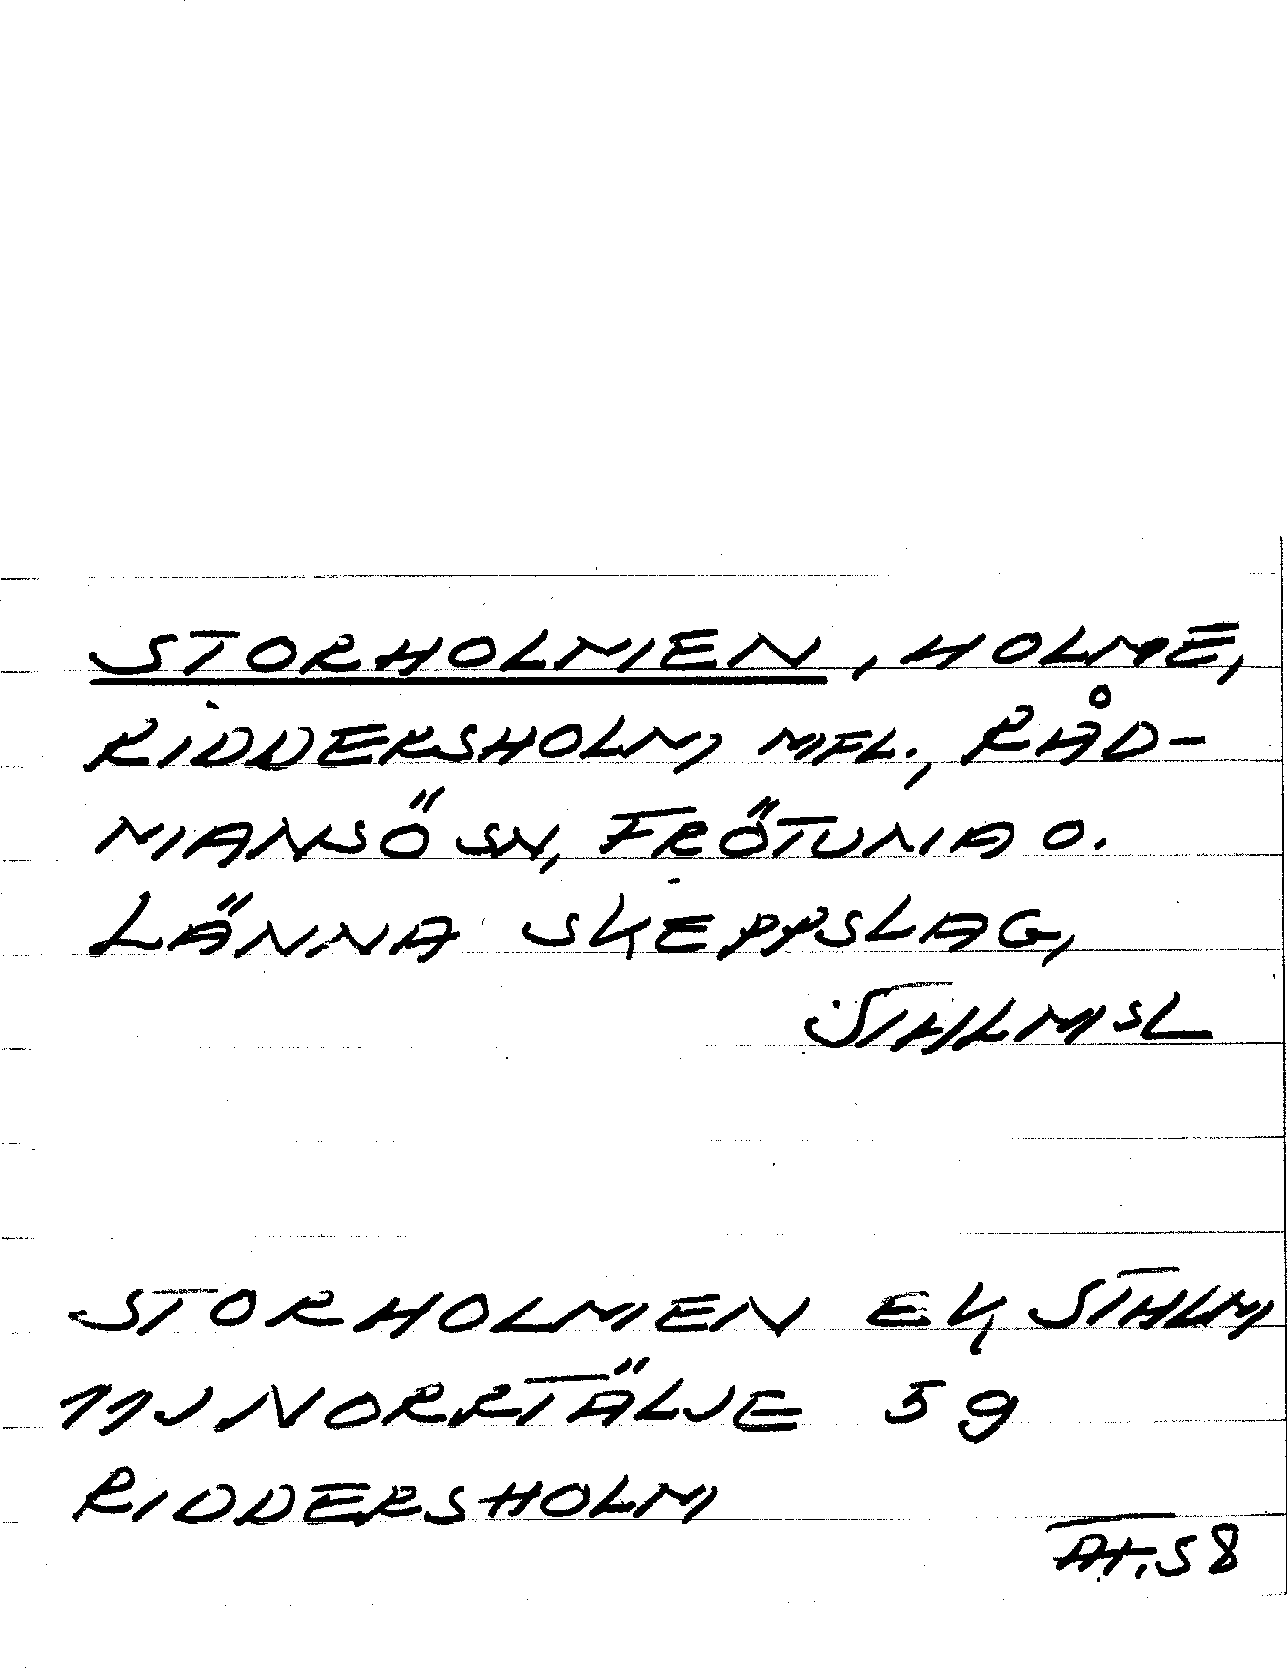 STORHOLMEN, HOLME,
RIDDERSHOLM MFL., RÅD-
MANSÖ SN, FRÖTUNA O.
LÄNNA SKEPPSLAG,
STHLMSL
STORHOLMEN EK STHLM
11J NORRTÄLJE 5g
RIDDERSHOLM
58